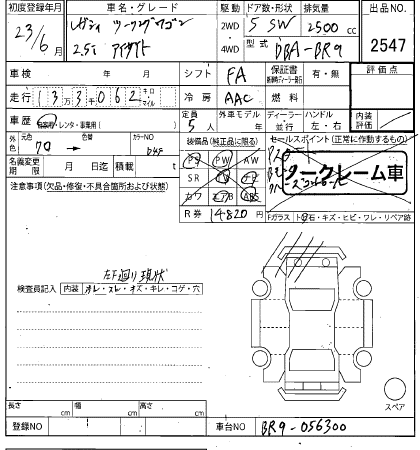 初度登録年月 車名・グレード 駆動 ドア数・形状 排気量 出品NO
23/6月 レガシィ ツーリングワゴン 2WD 5 SW 2500 cc
2.5i アイサイト 4WD 型式 DBA-BR9 2547
車検 年 月 シフト FA 保証書 有・無 評価点
走行 133062 キロ マイル 冷房 AAC 燃料
車歴 自家用・レンタ・事業用( ) 定員 5人 外車モデル 年 ディーラー 並行 ハンドル 左・右 内装評価
外色 元色 色替 カラーNO 装備品(純正品に限る) セールスポイント(正常に作動するもの)
クロ → D4S PS PW AW
名義変更期限 月 日迄 積載 t SR TV ナビ ノークレーム車
注意事項(欠品・修復・不具合箇所および状態) カワ エアB ABS
R券 14820 Fガラス 飛石・キズ・ヒビ・ワレ・リペア跡
左下廻り現状
検査員記入 内装 ヨレ・スレ・キズ・キレ・コゲ・穴
スペア
長さ cm 幅 cm 高さ cm
登録NO 車台NO BR9-056300